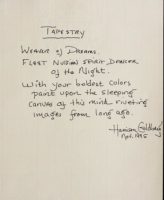 TAPESTRY
WEAVER of DREAMS.
FLEET NUBIAN SPIRIT DANCER
of the Night.
With your boldest colors
paint upon the sleeping
canvas of this mind riveting
images from long ago.
Nov. 1995